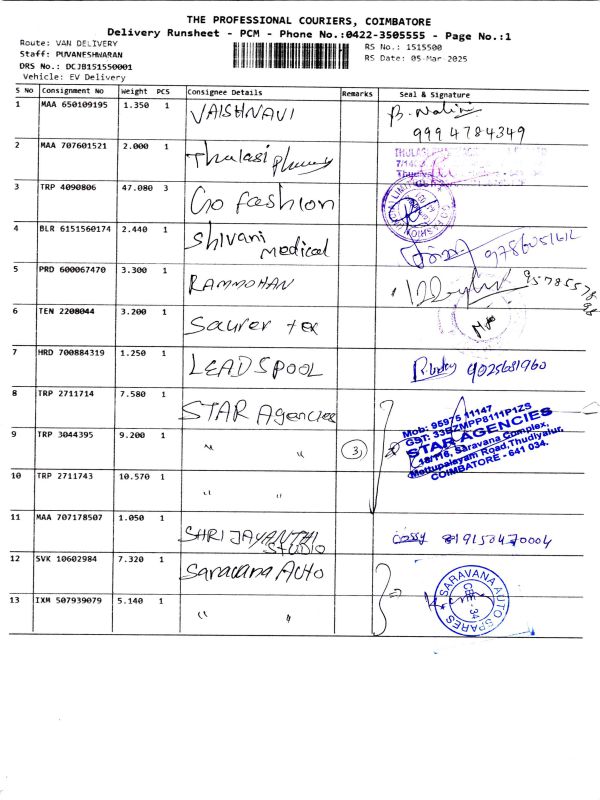 THE PROFESSIONAL COURIERS, COIMBATORE
Delivery Runsheet - PCM - Phone No.:0422-3505555 - Page No.:1
Route: VAN DELIVERY
Staff: PUVANESHWARAN
DRS No.: DCJB151550001
Vehicle: EV Delivery
RS No.: 1515500
RS Date: 05-Mar-2025
S No Consignment No Weight PCS Consignee Details Remarks Seal & Signature
1 MAA 650109195 1.350 1 VAISHNAVI B. Nalini
9994784349
2 MAA 707601521 2.000 1 Thulasi
3 TRP 4090806 47.080 3 Go fashion
4 BLR 6151560174 2.440 1 Shivani
medical 9786051612
5 PRD 600067470 3.300 1 RAMMOHAN
6 TEN 2208044 3.200 1 Saurer tex
7 HRD 700884319 1.250 1 LEADSPOOL 9025681960
8 TRP 2711714 7.580 1 STAR Agencies
Mob: 95975 11147
GST: 33BZMPP8111P1ZS
STAR AGENCIES
18/116, Saravana Complex,
Mettupalayam Road, Thudiyalur,
COIMBATORE - 641 034.
9 TRP 3044395 9.200 1 " " 3
10 TRP 2711743 10.570 1 " "
11 MAA 707178507 1.050 1 SHRI JAYANTHI
STUDIO
12 SVK 10602984 7.320 1 Saravana AUTO
SARAVANA AUTO SPARES
CBE - 34
13 IXM 507939079 5.140 1 " "